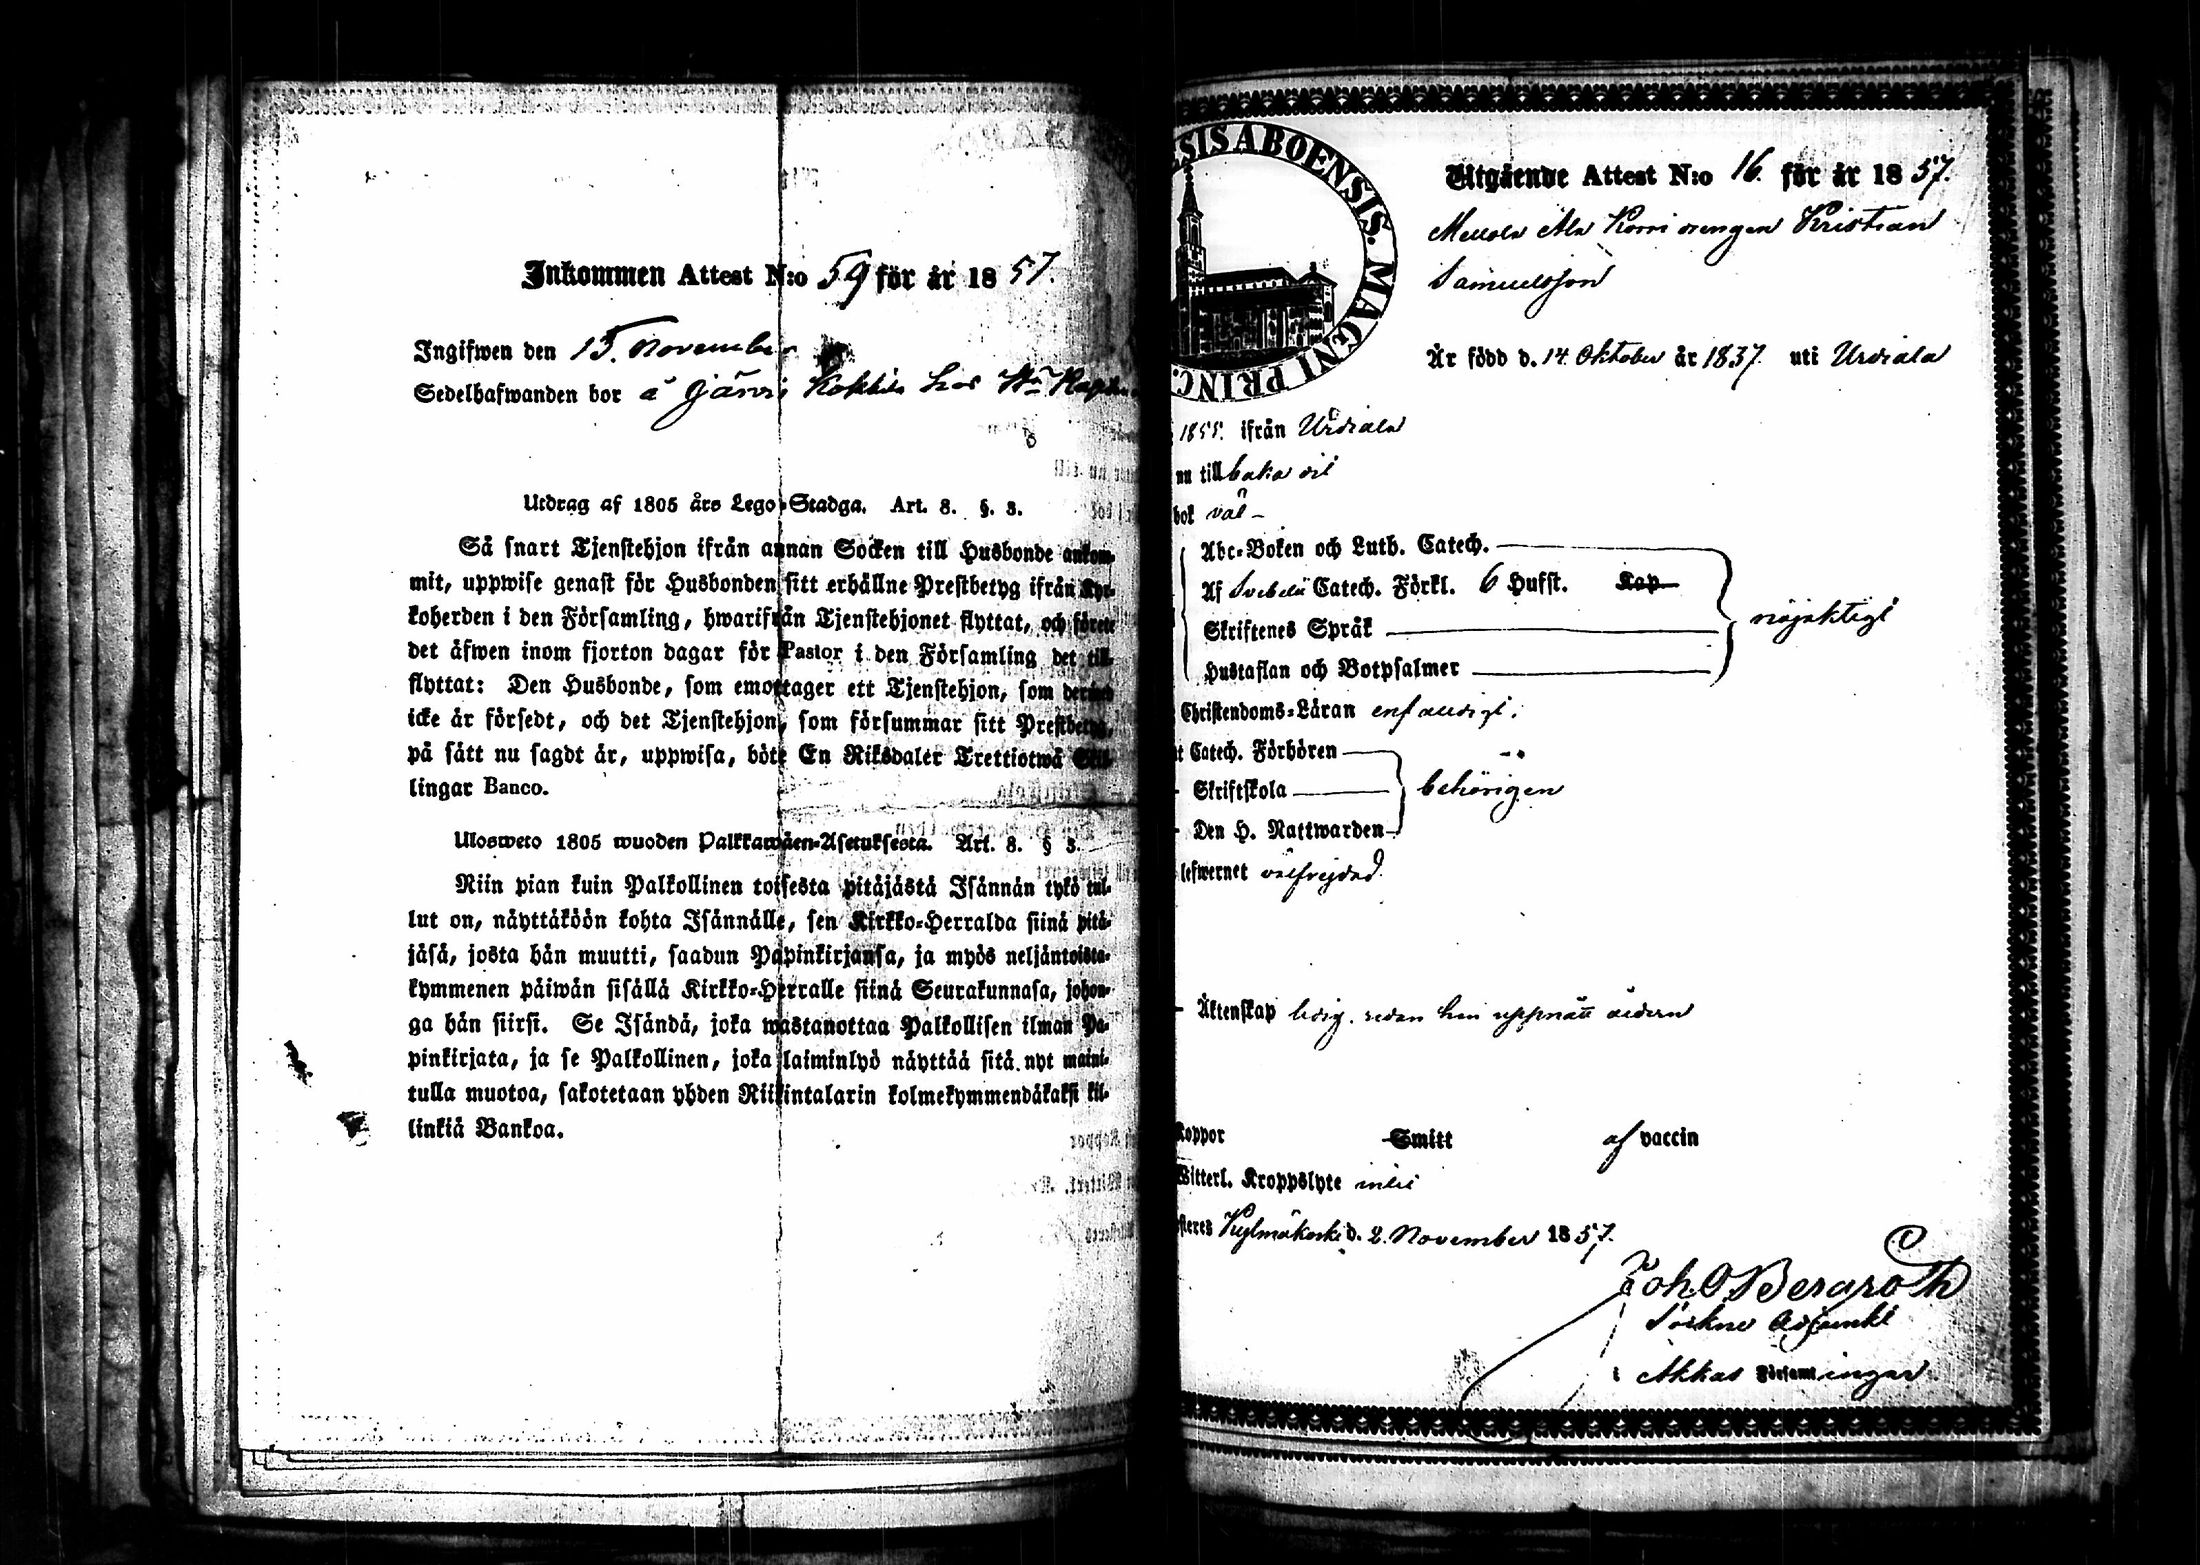 Inkommen Attest N:o 59 för år 1857.
Ingifwen den 15. November
Sedelhafwanden bor å Järvi Kokkila hos
Utdrag af 1805 års Lego-Stadga. Art. 8. §. 3.
Så snart Tjenstehjon ifrån annan Socken till Husbonde ankom-
mit, uppwise genast för Husbonden sitt erhållne Prestbetyg ifrån Kyr-
koherden i den Församling, hwarifrån Tjenstehjonet flyttat, och förete
det äfwen inom fjorton dagar för Pastor i den Församling det till-
flyttat: Den Husbonde, som emottager ett Tjenstehjon, som dermed
icke är försedt, och det Tjenstehjon, som försummar sitt Prestbetyg,
på sätt nu sagdt är, uppwisa, böte En Riksdaler Trettiotwå Skil-
lingar Banco.
Ulosweto 1805 wuoden Palkkawäen-Asetuksesta. Art. 8. § 3.
Niin pian kuin Palkollinen toisesta pitäjästä Isännän tykö tul-
lut on, näyttäköön kohta Isännälle, sen Kirkko-Herralda siinä pitä-
jäsä, josta hän muutti, saadun Papinkirjansa, ja myös neljäntoista-
kymmenen päiwän sisällä Kirkko-Herralle siinä Seurakunnasa, johon-
ga hän siirsi. Se Isändä, joka wastanottaa Palkollisen ilman Pa-
pinkirjata, ja se Palkollinen, joka laiminlyö näyttää sitä nyt maini-
tulla muotoa, sakotetaan yhden Riikintalarin kolmekymmendäkaksi kil-
linkiä Bankoa.
SIS ABOENSIS. MAGNI PRINC.
Utgående Attest N:o 16. för år 1857.
Mellola Ala Korri drengen Kristian
Samuelsson
Är född d. 14 Oktober år 1837. uti Urdiala
1855. ifrån Urdiala
nu tillbaka dit
bok väl
Abc-Boken och Luth. Catech.
Af Svebelii Catech. Förkl. 6 Hufst. Kap
Skriftenes Språk
nöjaktigt
Hustaflan och Botpsalmer
Christendoms-Läran enfaldigt.
Catech. Förhören
Skriftskola
behörigen
Den H. Nattwarden
lefwernet välfrejdad
Äktenskap ledig. sedan han uppnått åldern
Koppor Smitt af vaccin
Witterl. Kroppslyte intet
steres Kylmäkoski d. 2. November 1857.
Joh. O Bergroth
Sockne Adjunkt
i Akkas Församlingar